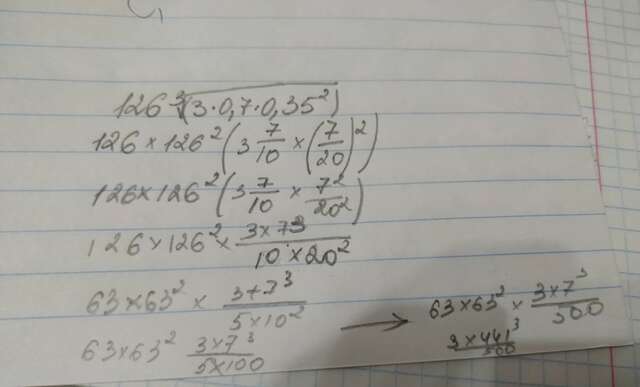 126 ³√(3·0,7·0,35²)
126×126²(3 7/10 × (7/20)²)
126×126²(3 7/10 × 7²/20²)
126×126²× 3×7³/10×20²
63×63² × 3+7³/5×10²
63×63² 3×7³/5×100
→ 63×63² × 3×7³/500
3×441³/500